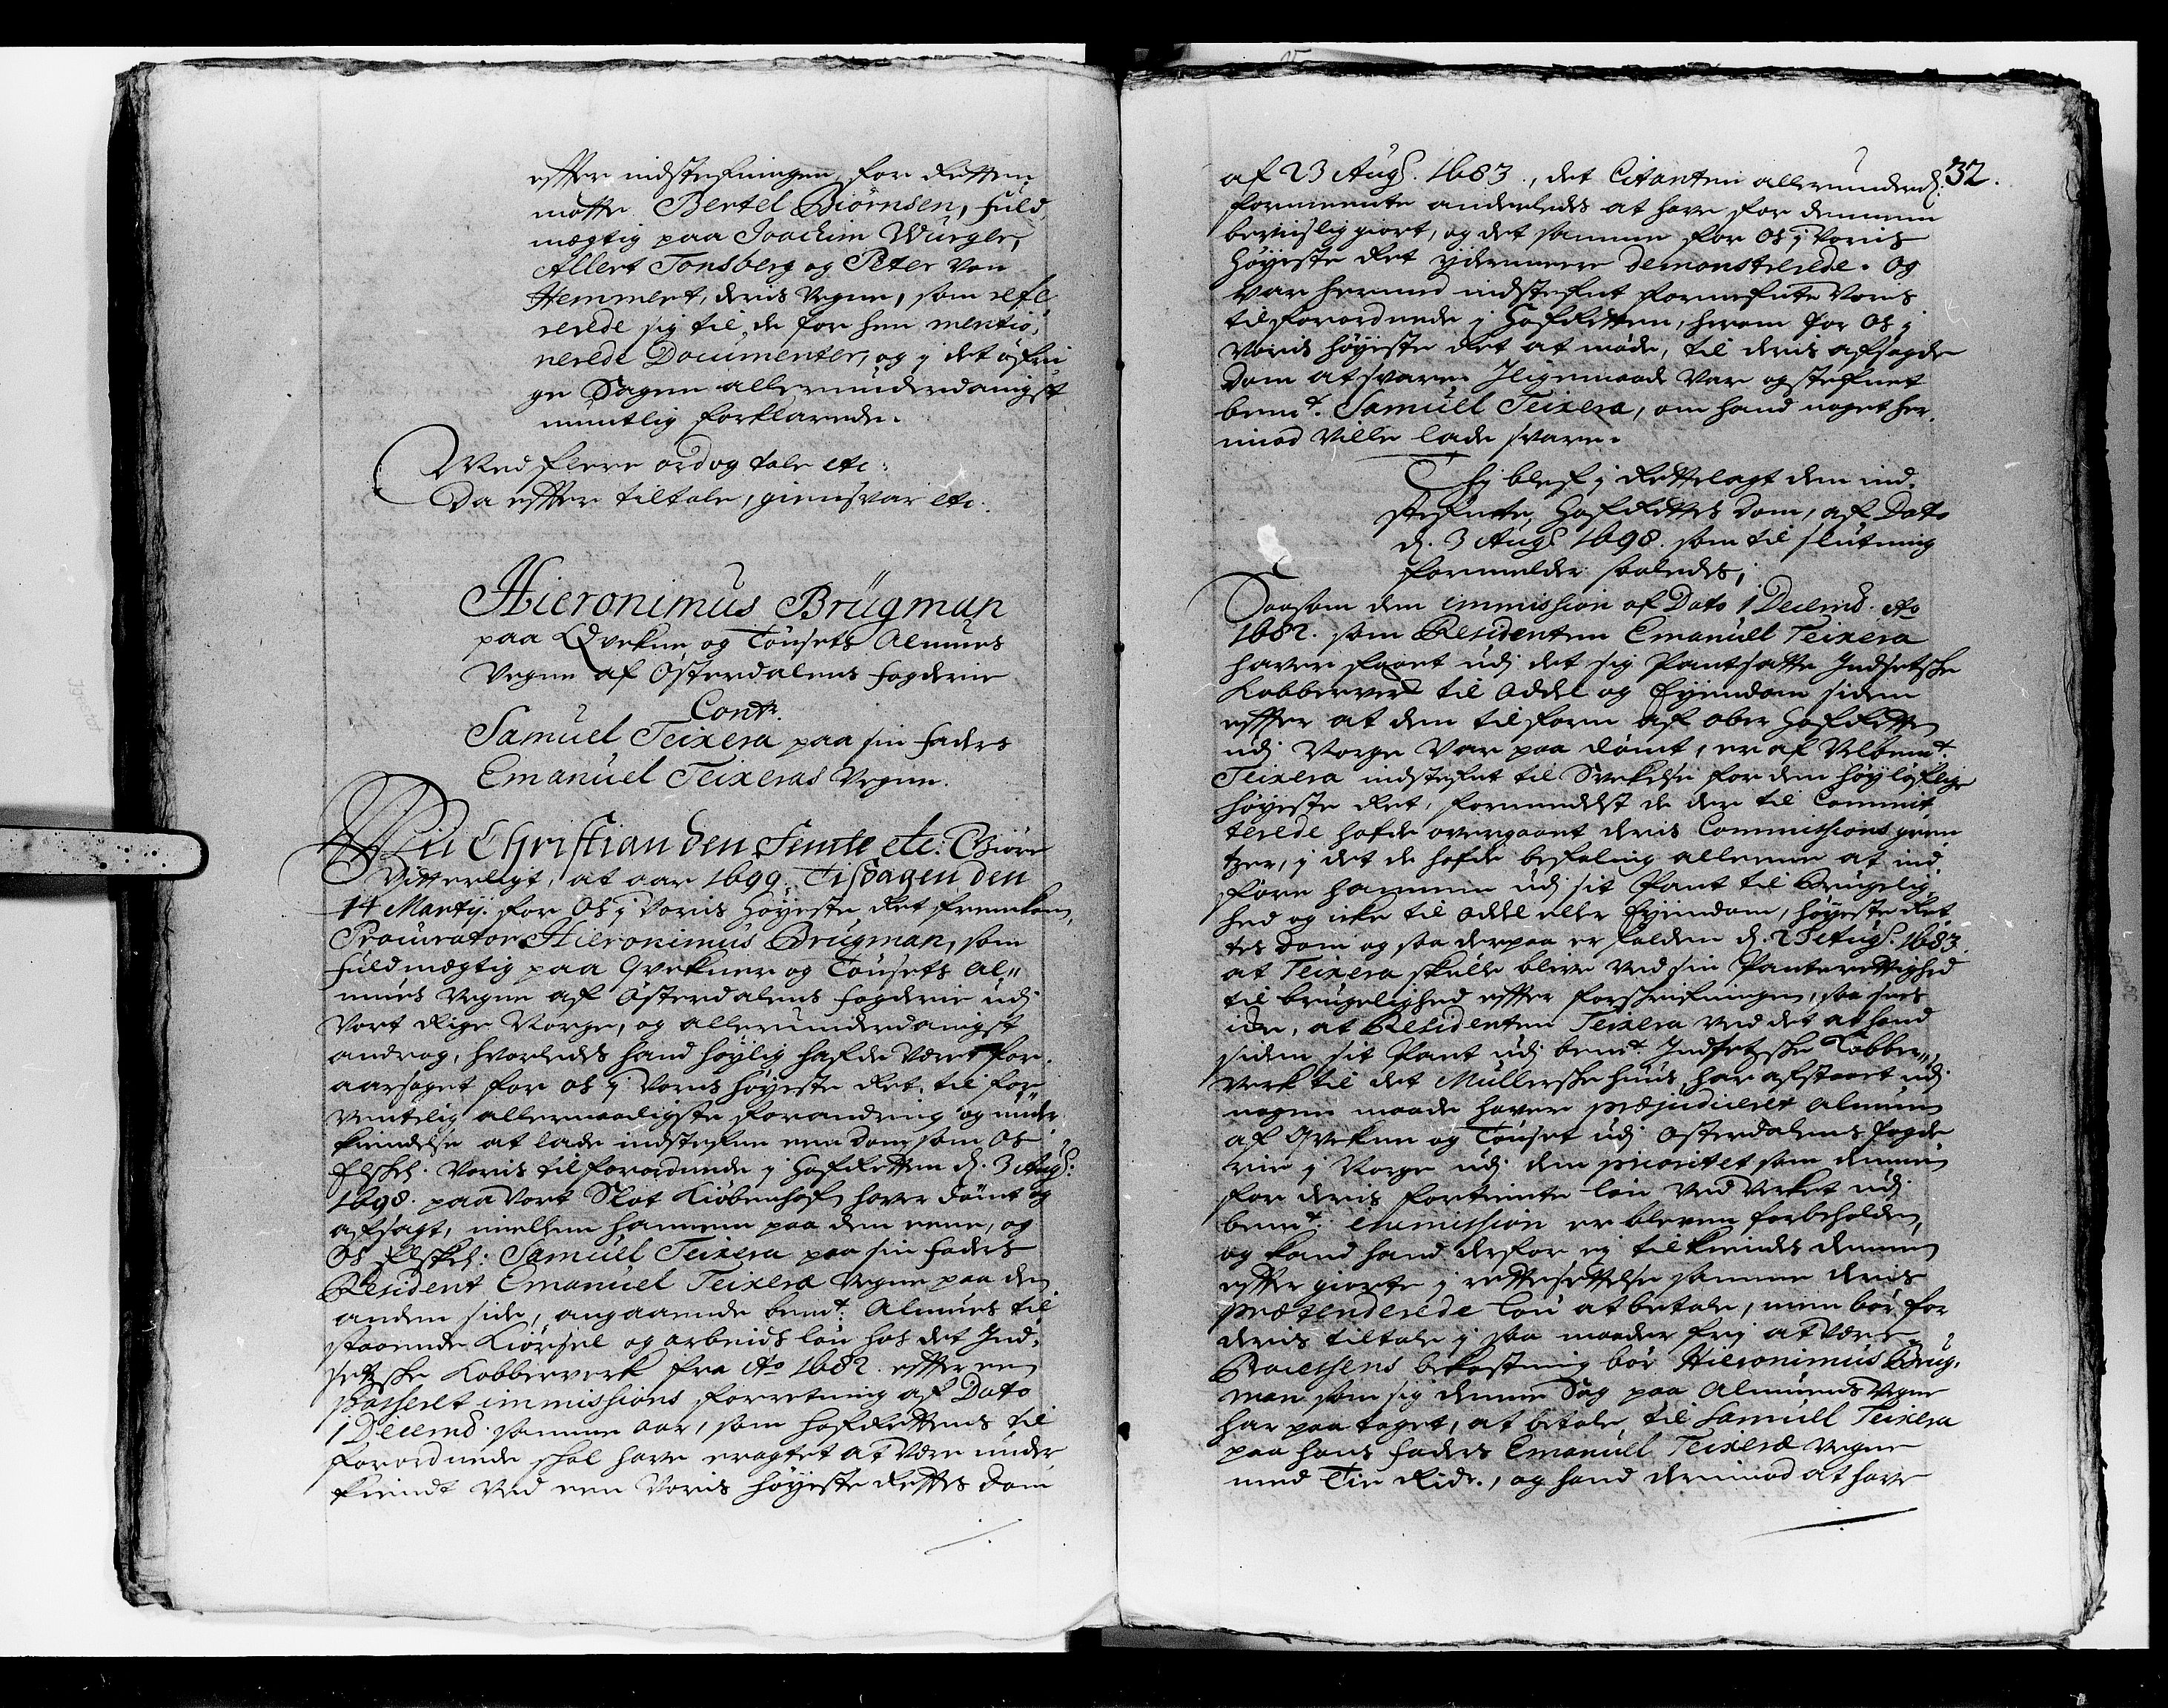 effter indstefningen for Retten
motte Bertel Biørnsen, fuld
mægtig paa Joachim Würgler,
Allert Tonsberg og Peter von
Hemmert, deris Vegne, som refe
rerede sig til de for hen mentio„
nerede Documenter, og j det øfri
ge Sagen allerunderdanigst
mundtlig forklarede.
Med flere ord og tale etc:
Da effter tiltale, giensvar etc.
Hieronimus Brügman
paa Qvekne og Tønsets Almues
Vegne af Østerdalens fogderie
Contr.
Samuel Teixera paa sin faders
Emanuel Teixeras Vegne.
Wii Christian den Femte etc: Giøre
Vitterligt, at aar 1699, Tisdagen den
14 Martij. for Os j Voris Høyeste Ret fremkom
Procurator Hieronimus Brügman, som
fuldmægtig paa Qvekner og Tønsets Al„
mues Vegne af Østerdalens fogderie udj
Vort Rige Norge, og allerunderdanigst
androg, hvorledes hand høylig hafde veret for„
aarsaget for os j Voris høyeste Ret, til for„
ventelig allernaadigste forandring og under
kiendelse at lade indstefne een dom som Os
Elskel. Voris tilforordnede j Hofretten d. 3 Augs:
1698. paa Vort Slot Kiøbenhafn haver dømt og
afsagt, imellem hannem paa den eene, og
Os Elskel: Samuel Teixera paa sin faders
Resident Emanuel Teixera Vegne paa den
anden side, angaaende bemt: Almues til
staaende Kiørsel og arbeids løn hos det Ind„
setzske Kobberverk fra Ao 1682. effter en
passeret immissions forretning af Dato
1 Decemb. samme aar, som Hofrettens til
forordnede skal have eragtet at være under
kiendt ved een Voris høyeste Rettes dom
32.
af 23 Augs. 1683., det Citanten allerunderd:
formeente anderledes at have for dennem
bevislig giort, og det samme for Os j Voris
Høyeste Ret ydermeere demonstrerede. Og
var hermed indstefnt fornefnte Voris
tilforordnede j Hofretten, herom for Os j
Voris høyeste Ret at møde, til deris afsagde
Dom at svare. Jligemaade var og stefnet
bemt. Samuel Teixera, om hand noget her„
imod ville lade svare.
Thj blef j Rettelagt den ind„
stefnte Hofrettes Dom, af Dato
d. 3 Augs 1698. som til slutning
formelder saaledes,
Saasom den immission af Dato 1 Decemb. Ao
1682. som Residenten Emanuel Teixera
haver faaet udj det sig Pantsatte Indsetzske
Kobberverk til Oddel og Eyendom siden
effter at den tilforn af ober Hofretten
udj Norge var paa dømt, er af Velbemt
Teixera indstefnt til Svekelse for den høyløflige
høyeste Ret, formedelst de der til Commit
terede hafde overgaaet deris Commissions gren
tzer, j det de hafde befaling alleene at ind
føre hannem udj sit Pant til Brugelig„
hed og icke til Oddel eller Eyendom, høyeste Ret
tes dom og saa derpaa er falden d. 23 Augs. 1683.
at Teixera skulle blive ved sin Panterettighed
til brugelighed effter forskrifningen, saa sees
icke, at Residenten Teixera ved det at hand
siden sit Pant udj bemt Indsetzske Kobber„
verk til det Müllerske huus har afstaaet udj
nogen maade haver præjudiceret Almuen
af Qvekne og Tønset udj Østerdalens fogde
rie j Norge udj den prioritet som dennem
for deris fortiente løn ved Verket udj
bemt: immission er bleven forbeholden,
og kand hand derfor ej tilkiendes dennem
effter giorte j rettesettelse samme deris
prætenderede løn at betale, men bør for
deris tiltale j saa maader frj at være.
Processens bekostning bør Hieronimus Brüg„
man som sig denne Sag paa Almuens Vegne
har paataget, at betale til Samuel Teixera
paa hans faders Emanuel Teixeræ Vegne
med Tie Ridr., og hand derimod at have